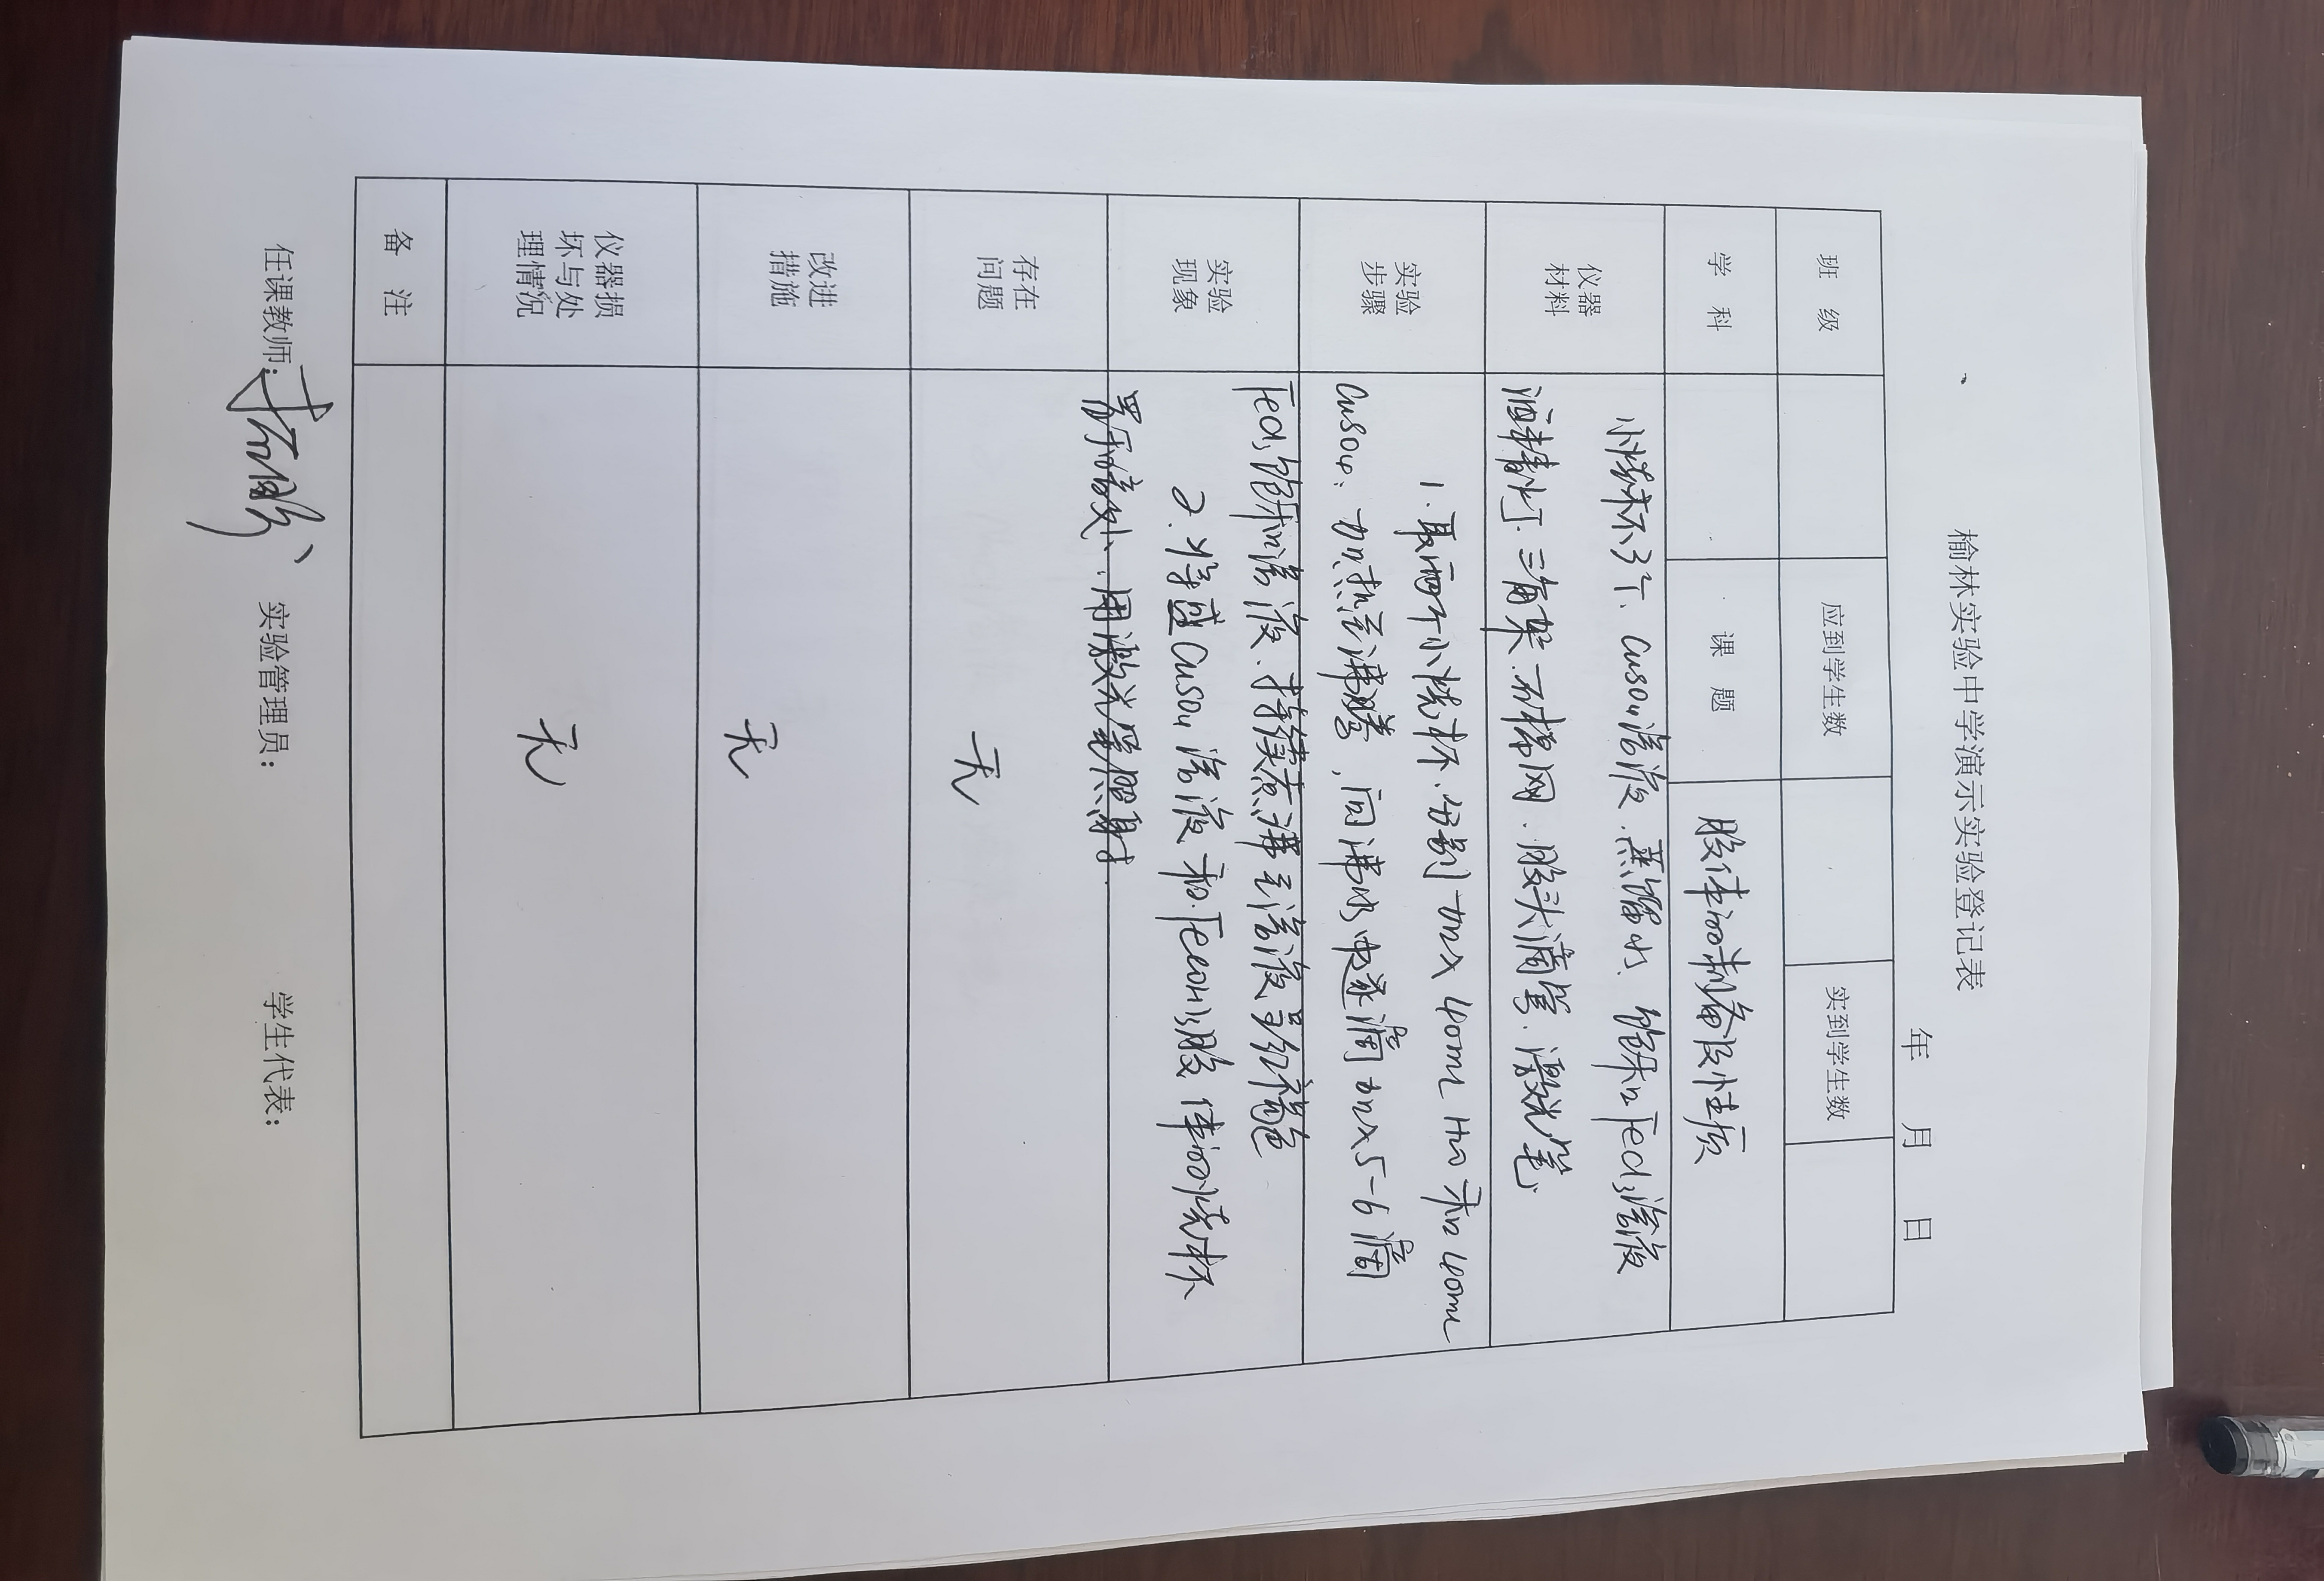 榆林实验中学演示实验登记表
年 月 日
班 级 应到学生数 实到学生数
学 科 课 题 胶体的制备及性质
仪器材料 小烧杯3个、CuSO4溶液、蒸馏水、饱和FeCl3溶液
酒精灯、三角架、石棉网、胶头滴管、激光笔、
实验步骤 1.取两个小烧杯、分别加入40mL H2O和40mL
CuSO4、加热至沸腾,向沸水中逐滴加入5-6滴
FeCl3饱和溶液、持续煮沸至溶液呈红褐色
实验现象 2.将盛CuSO4溶液和Fe(OH)3胶体的烧杯
置于暗处、用激光笔照射.
存在问题 无
改进措施 无
仪器损坏与处理情况 无
备 注
任课教师: 实验管理员: 学生代表: